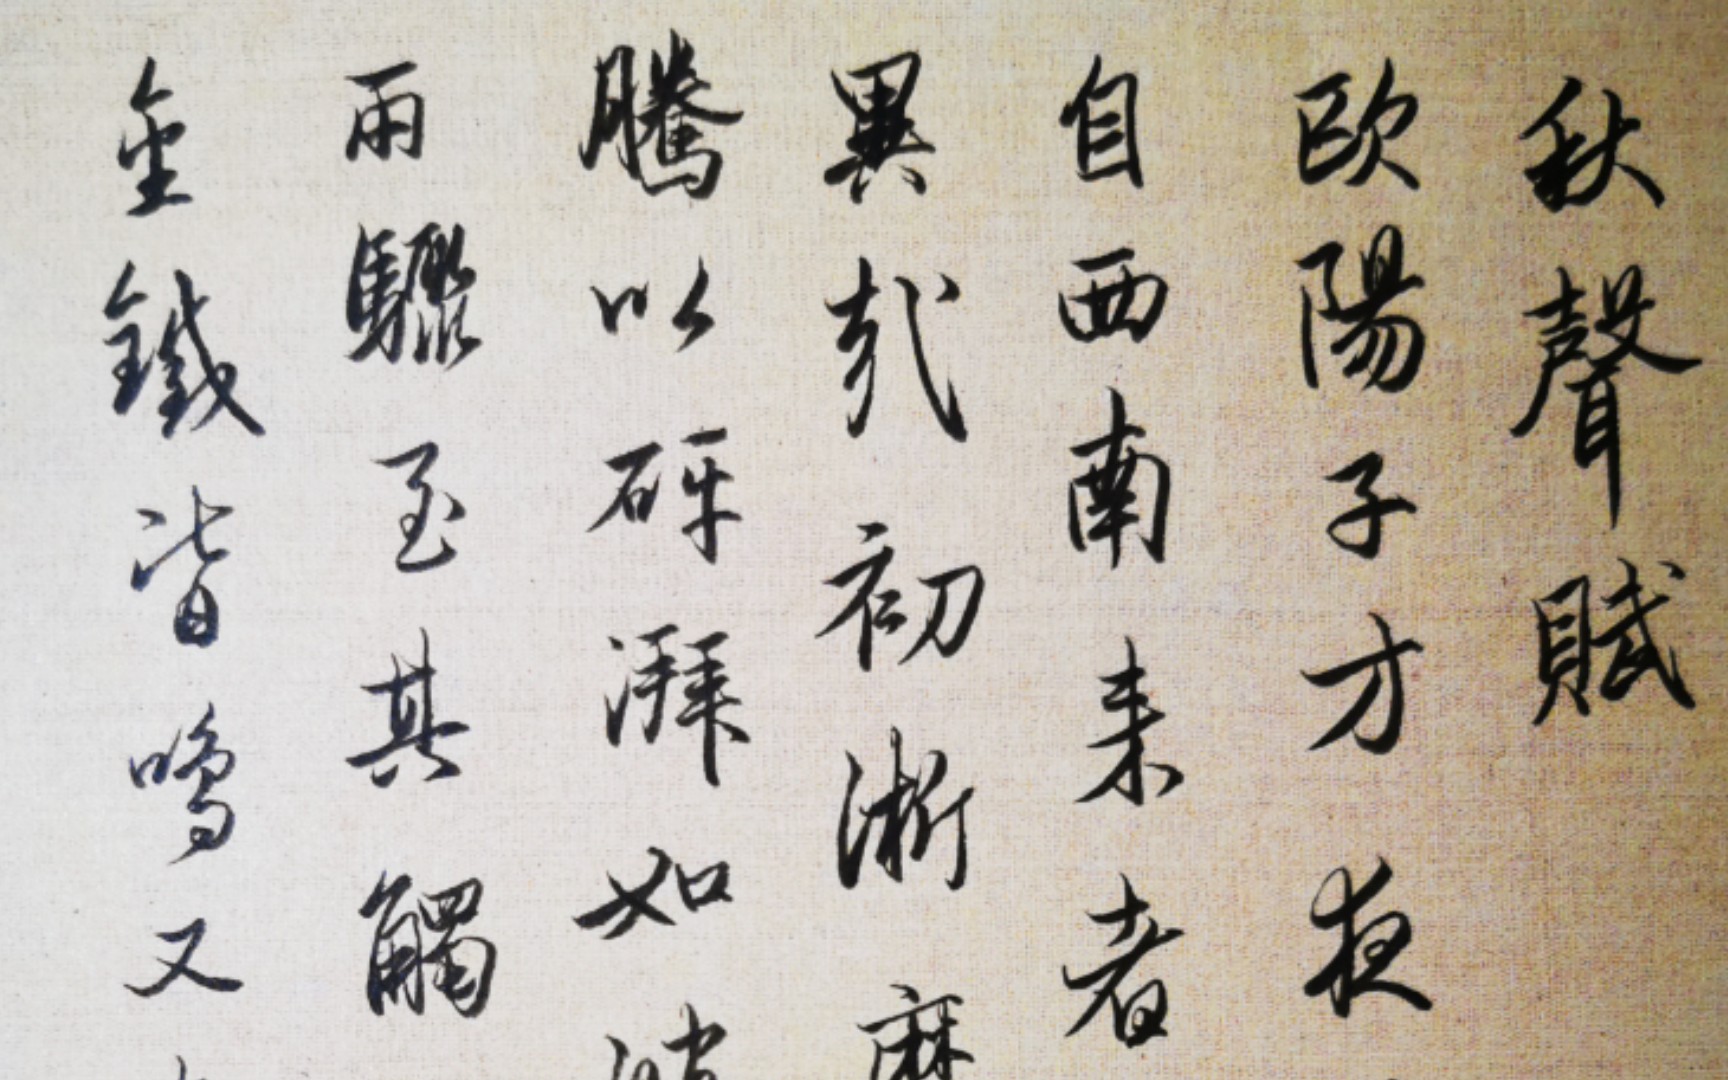 秋聲賦
歐陽子才夜
自西南来者
異哉初淅
騰以砰湃如
雨驟至其觸
金鐵皆鳴又